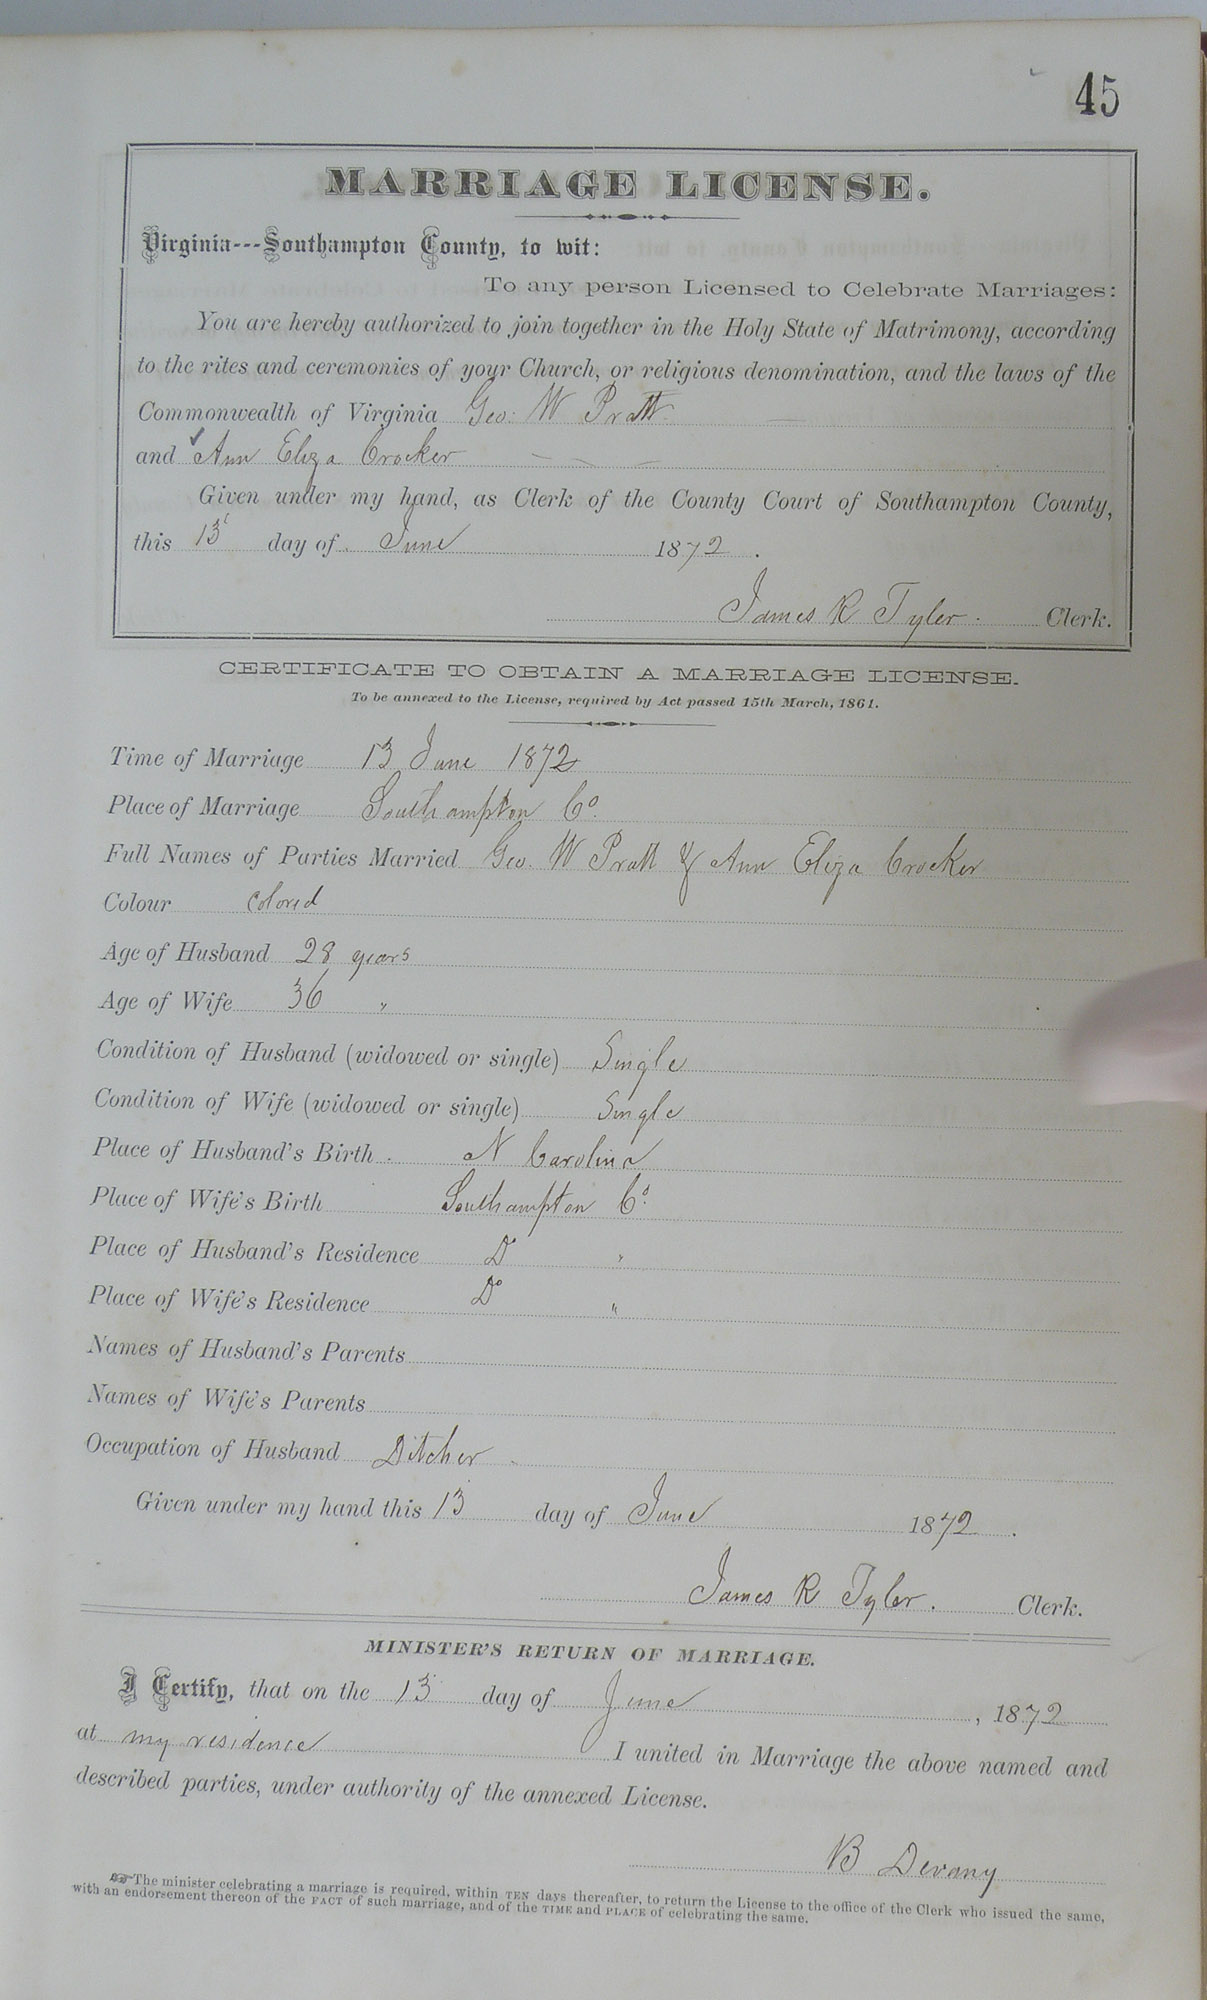 45
MARRIAGE LICENSE.
Virginia---Southampton County, to wit:
To any person Licensed to Celebrate Marriages:
You are hereby authorized to join together in the Holy State of Matrimony, according
to the rites and ceremonies of your Church, or religious denomination, and the laws of the
Commonwealth of Virginia Geo: W Pratt
and Ann Eliza Crocker
Given under my hand, as Clerk of the County Court of Southampton County,
this 13 day of June 1872.
James R Tyler. Clerk.
CERTIFICATE TO OBTAIN A MARRIAGE LICENSE.
To be annexed to the License, required by Act passed 15th March, 1861.
Time of Marriage 13 June 1872
Place of Marriage Southampton Co.
Full Names of Parties Married Geo. W Pratt & Ann Eliza Crocker
Colour Colored
Age of Husband 28 years
Age of Wife 36 "
Condition of Husband (widowed or single) Single
Condition of Wife (widowed or single) Single
Place of Husband's Birth N Carolina
Place of Wife's Birth Southampton Co.
Place of Husband's Residence Do "
Place of Wife's Residence Do "
Names of Husband's Parents
Names of Wife's Parents
Occupation of Husband Ditcher
Given under my hand this 13 day of June 1872.
James R Tyler. Clerk.
MINISTER'S RETURN OF MARRIAGE.
I Certify, that on the 13 day of June, 1872
at my residence I united in Marriage the above named and
described parties, under authority of the annexed License.
B Devany
☞The minister celebrating a marriage is required, within TEN days thereafter, to return the License to the office of the Clerk who issued the same,
with an endorsement thereon of the FACT of such marriage, and of the TIME and PLACE of celebrating the same.